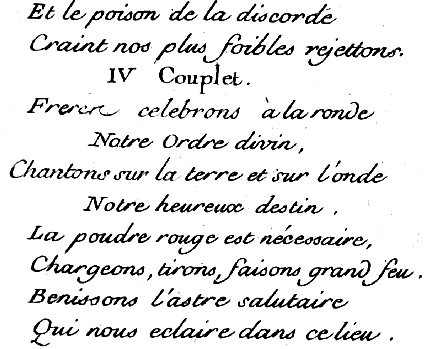 Et le poison de la discorde
Craint nos plus foibles rejettons.
IV Couplet.
celebrons à la ronde
Notre Ordre divin,
Chantons sur la terre et sur l'onde
Notre heureux destin.
La poudre rouge est nécessaire,
Chargeons, tirons, faisons grand feu.
Benissons l'astre salutaire
Qui nous eclaire dans ce lieu.